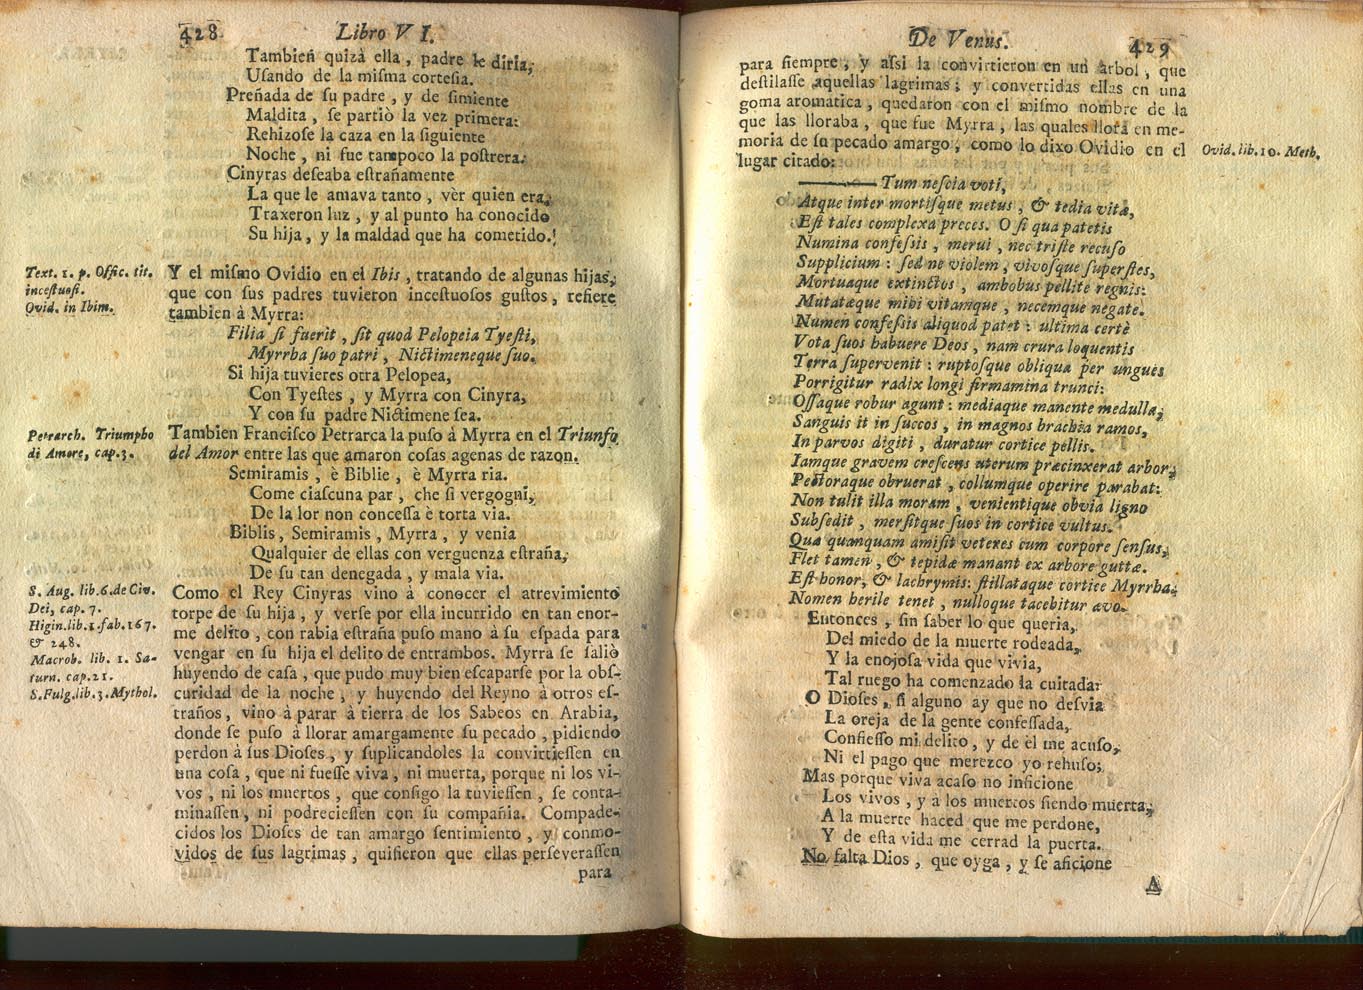 428 Libro VI.
Tambien quizà ella, padre le diria,
Uſando de la miſma corteſia.
Preñada de ſu padre, y de ſimiente
Maldita, ſe partiò la vez primera:
Rehizoſe la caza en la ſiguiente
Noche, ni fue tampoco la poſtrera.
Cinyras deſeaba eſtrañamente
La que le amava tanto, vèr quien era,
Traxeron luz, y al punto ha conocido
Su hija, y la maldad que ha cometido.
Text. 1. p. Offic. tit.
inceſtuoſi.
Ovid. in Ibim.
Y el miſmo Ovidio en el Ibis, tratando de algunas hijas,
que con ſus padres tuvieron inceſtuoſos guſtos, refiere
tambien à Myrra:
Filia ſi fuerit, ſit quod Pelopeia Tyeſti,
Myrrha ſuo patri, Nictimeneque ſuo.
Si hija tuvieres otra Pelopea,
Con Tyeſtes, y Myrra con Cinyra,
Y con ſu padre Nictimene ſea.
Petrarch. Triumpho
di Amore, cap. 3.
Tambien Franciſco Petrarca la puſo à Myrra en el Triunfo
del Amor entre las que amaron coſas agenas de razon.
Semiramis, è Biblie, è Myrra ria.
Come ciaſcuna par, che ſi vergogni,
De la lor non conceſſa è torta via.
Biblis, Semiramis, Myrra, y venia
Qualquier de ellas con verguenza eſtraña,
De ſu tan denegada, y mala via.
S. Aug. lib. 6. de Civ.
Dei, cap. 7.
Higin. lib. 1. fab. 167.
& 248.
Macrob. lib. 1. Sa-
turn. cap. 21.
S. Fulg. lib. 3. Mythol.
Como el Rey Cinyras vino à conocer el atrevimiento
torpe de ſu hija, y verſe por ella incurrido en tan enor-
me delito, con rabia eſtraña puſo mano à ſu eſpada para
vengar en ſu hija el delito de entrambos. Myrra ſe ſaliò
huyendo de caſa, que pudo muy bien eſcaparſe por la obſ-
curidad de la noche, y huyendo del Reyno à otros eſ-
traños, vino à parar à tierra de los Sabeos en Arabia,
donde ſe puſo à llorar amargamente ſu pecado, pidiendo
perdon à ſus Dioſes, y ſuplicandoles la convirtieſſen en
una coſa, que ni fueſſe viva, ni muerta, porque ni los vi-
vos, ni los muertos, que conſigo la tuvieſſen, ſe conta-
minaſſen, ni podrecieſſen con ſu compañia. Compade-
cidos los Dioſes de tan amargo ſentimiento, y conmo-
vidos de ſus lagrimas, quiſieron que ellas perſeveraſſen
para
De Venus. 429
para ſiempre, y aſsi la convirtieron en un arbol, que
deſtilaſſe aquellas lagrimas; y convertidas ellas en una
goma aromatica, quedaron con el miſmo nombre de la
que las lloraba, que fue Myrra, las quales llora en me-
moria de ſu pecado amargo, como lo dixo Ovidio en el
lugar citado:
Ovid. lib. 10. Meth.
Tum neſcia voti,
Atque inter mortiſque metus, & tedia vitæ,
Eſt tales complexa preces. O ſi qua patetis
Numina confeſsis, merui, nec triſte recuſo
Supplicium: ſed ne violem, vivoſque ſuperſtes,
Mortuaque extinctos, ambobus pellite regnis:
Mutatæque mihi vitamque, necemque negate.
Numen confeſsis aliquod patet: ultima certè
Vota ſuos habuere Deos, nam crura loquentis
Terra ſupervenit: ruptoſque obliqua per ungues
Porrigitur radix longi firmamina trunci:
Oſſaque robur agunt: mediaque manente medulla,
Sanguis it in ſuccos, in magnos brachia ramos,
In parvos digiti, duratur cortice pellis.
Iamque gravem creſcens uterum præcinxerat arbor,
Pectoraque obruerat, collumque operire parabat:
Non tulit illa moram, venientique obvia ligno
Subſedit, merſitque ſuos in cortice vultus.
Qua quanquam amiſit veteres cum corpore ſenſus,
Flet tamen, & tepidæ manant ex arbore guttæ.
Eſt honor, & lachrymis: ſtillataque cortice Myrrha,
Nomen herile tenet, nulloque tacebitur ævo.
Entonces, ſin ſaber lo que queria,
Del miedo de la muerte rodeada,
Y la enojoſa vida que vivia,
Tal ruego ha comenzado la cuitada:
O Dioſes, ſi alguno ay que no deſvia
La oreja de la gente confeſſada,
Confieſſo mi delito, y de èl me acuſo,
Ni el pago que merezco yo rehuſo;
Mas porque viva acaſo no inficione
Los vivos, y à los muertos ſiendo muerta,
A la muerte haced que me perdone,
Y de eſta vida me cerrad la puerta.
No falta Dios, que oyga, y ſe aficione
A